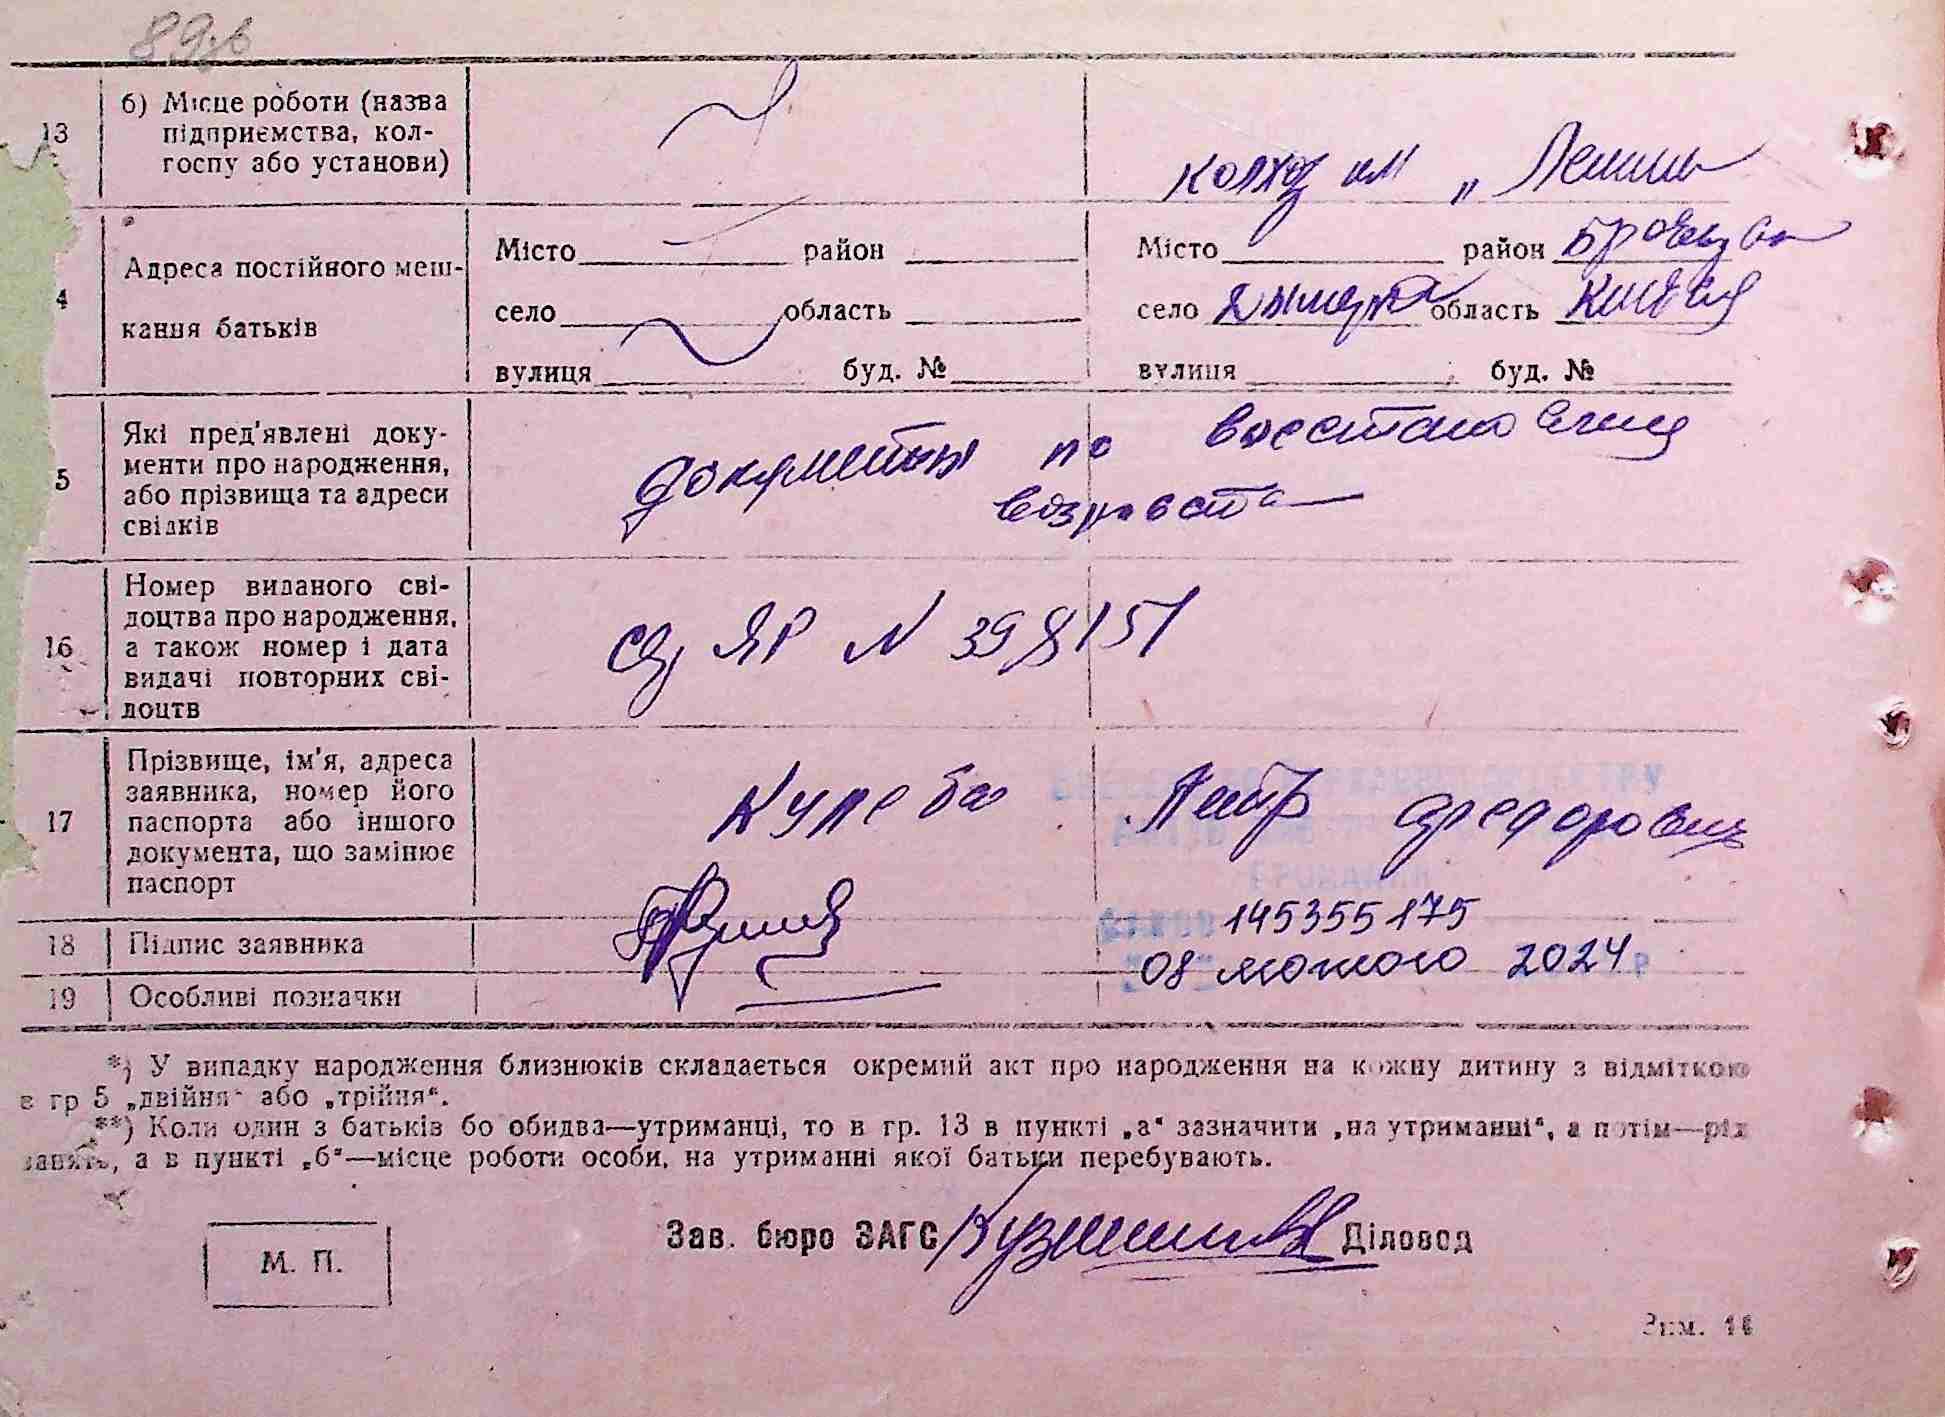 13 б) Місце роботи (назва
підприємства, кол-
госпу або установи)
колхоз им „Ленина
4 Адреса постійного меш-
кання батьків
Місто район
село область
вулиця буд. №
Місто район Броварск
село Дымерка область Киевск
вулиця буд. №
5 Які пред'явлені доку-
менти про народження,
або прізвища та адреси
свідків
документы по восстановлению
возраста
16 Номер виданого сві-
доцтва про народження,
а також номер і дата
видачі повторних сві-
доцтв
св ЯР N 398151
17 Прізвище, ім'я, адреса
заявника, номер його
паспорта або іншого
документа, що замінює
паспорт
Кулеба Петр Федорович
18 Підпис заявника
145355175
08 лютого 2024 р
19 Особливі позначки
*) У випадку народження близнюків складається окремий акт про народження на кожну дитину з відміткою
в гр 5 „двійня“ або „трійня“.
**) Коли один з батьків бо обидва—утриманці, то в гр. 13 в пункті „а“ зазначити „на утриманні“, а потім—рід
занять, а в пункті „б“—місце роботи особи, на утриманні якої батьки перебувають.
Зав. бюро ЗАГС Діловод
М. П.